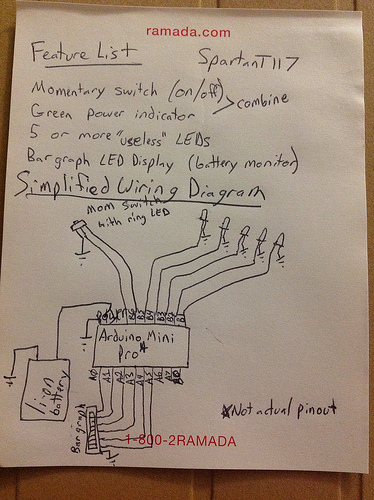 ramada.com
Feature List
SpartanT117
Momentary switch (on/off)
combine
Green power indicator
5 or more "useless" LEDs
Bar graph LED Display (battery monitor)
Simplified Wiring Diagram
Mom switch
with ring LED
Power
Arduino Mini
Pro*
A0 A1 A2 A3 A4 A5 A6 A7
lion
battery
Bar graph
*Not actual pinout
1-800-2RAMADA